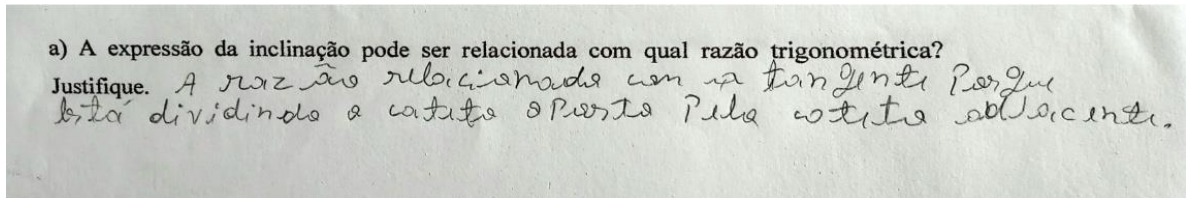 a) A expressão da inclinação pode ser relacionada com qual razão trigonométrica?
Justifique. A razão relacionada com a tangente Porque
está dividindo o cateto oposto Pelo cateto adjacente.